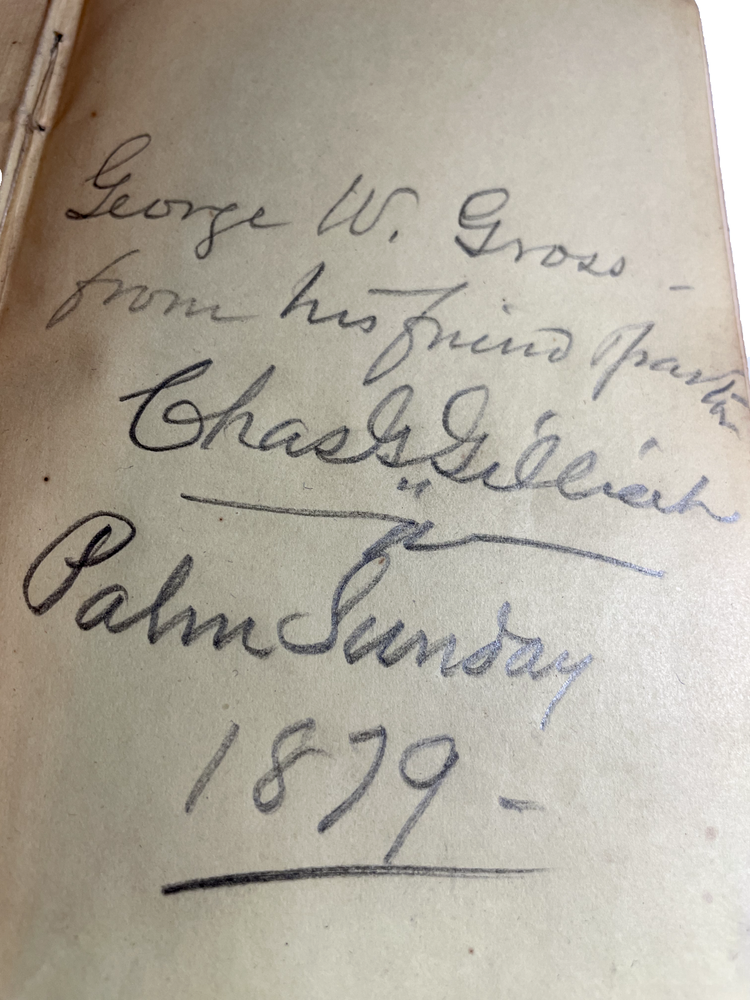 George W. Gross -
from his friend & pastor
Chas G Gilliat
Palm Sunday
1879 -